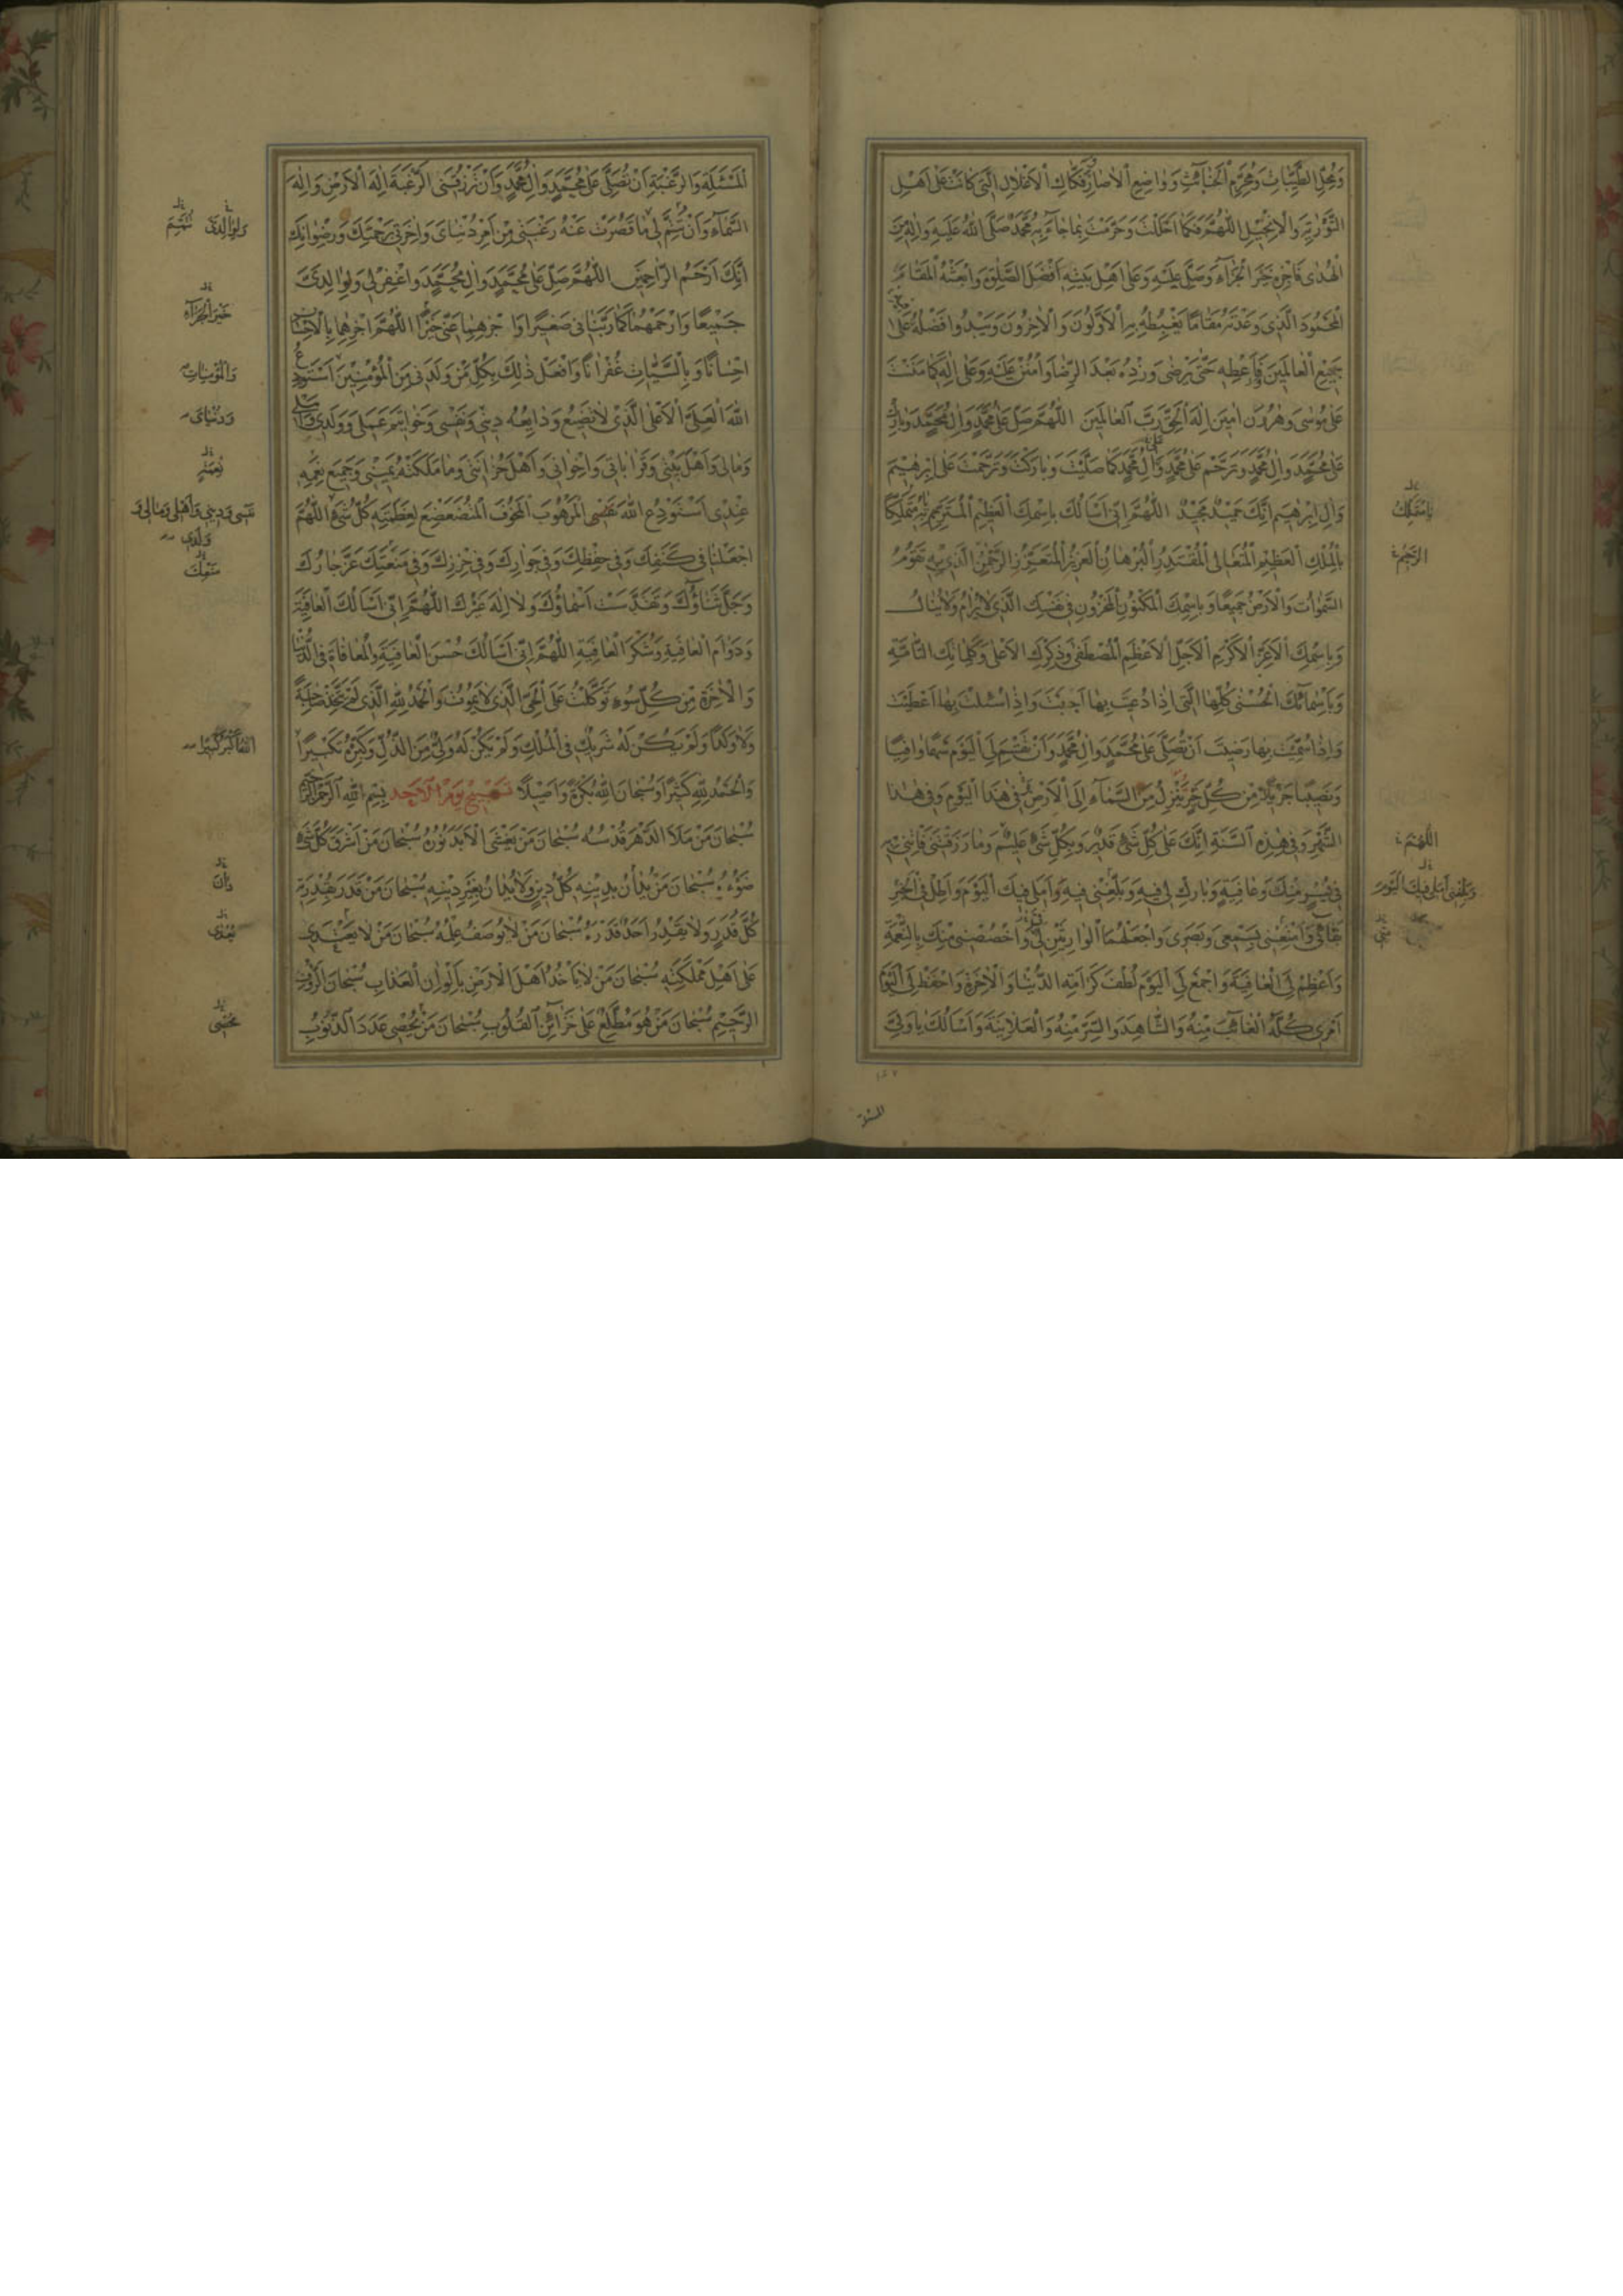 وَمُحِلِّ الطَّيِّبَاتِ وَمُحَرِّمِ الْخَبَآئِثِ وَوَاضِعِ الْاٰصَارِ وَفَكَّاكِ الْاَغْلَالِ الَّتِى كَانَتْ عَلٰى اَهْلِ
التَّوْرٰيةِ وَالْاِنْجِيْلِ اللّٰهُمَّ فَكَمَا اَحْلَلْتَ وَحَرَّمْتَ بِمَا جَآءَ بِهِ مُحَمَّدٌ صَلَّى اللّٰهُ عَلَيْهِ وَاٰلِهِ مِنَ
الْهُدٰى فَاجْزِهِ خَيْرَ الْجَزَآءِ وَصَلِّ عَلَيْهِ وَعَلٰى اَهْلِ بَيْتِهِ اَفْضَلَ الصَّلٰوةِ وَابْعَثْهُ الْمَقَامَ
الْمَحْمُودَ الَّذِى وَعَدْتَهُ مَقَامًا يَغْبِطُهُ بِهِ الْاَوَّلُونَ وَالْاٰخِرُونَ وَيَبْدُو فَضْلُهُ عَلٰى
جَمِيْعِ الْعَالَمِيْنَ وَاَعْطِهِ حَتّٰى يَرْضٰى وَزِدْهُ بَعْدَ الرِّضَا وَامْنُنْ عَلَيْهِ وَعَلٰى اٰلِهِ كَمَا مَنَنْتَ
عَلٰى مُوْسٰى وَهٰرُوْنَ اٰمِيْنَ اِلٰهَ الْحَقِّ رَبَّ الْعَالَمِيْنَ اللّٰهُمَّ صَلِّ عَلٰى مُحَمَّدٍ وَاٰلِ مُحَمَّدٍ وَبَارِكْ
عَلٰى مُحَمَّدٍ وَاٰلِ مُحَمَّدٍ وَتَرَحَّمْ عَلٰى مُحَمَّدٍ وَاٰلِ مُحَمَّدٍ كَمَا صَلَّيْتَ وَبَارَكْتَ وَتَرَحَّمْتَ عَلٰى اِبْرٰهِيْمَ
وَاٰلِ اِبْرٰهِيْمَ اِنَّكَ حَمِيْدٌ مَجِيْدٌ اللّٰهُمَّ اِنِّى اَسْاَلُكَ بِاسْمِكَ الْعَظِيْمِ
بِالْمُلْكِ الْعَظِيْمِ الْمُتَعَالِى الْمُقْتَدِرِ الْبُرْهَانِ الْعَزِيْزِ الْمُتَعَزِّزِ الرَّحْمٰنِ الَّذِى بِهِ تَقُوْمُ
السَّمٰوَاتُ وَالْاَرْضُ جَمِيْعًا وَبِاسْمِكَ الْمَكْنُوْنِ الْمَخْزُوْنِ فِى نَفْسِكَ الَّذِى لَا يُرَامُ وَلَا يُنَالُ
وَبِاسْمِكَ الْاَعَزِّ الْاَكْرَمِ الْاَجَلِّ الْاَعْظَمِ الْمُصْطَفٰى وَذِكْرِكَ الْاَعْلٰى وَكَلِمَاتِكَ التَّآمَّةِ
وَبِاَسْمَآئِكَ الْحُسْنٰى كُلِّهَا الَّتِى اِذَا دُعِيْتَ بِهَا اَجَبْتَ وَاِذَا سُئِلْتَ بِهَا اَعْطَيْتَ
وَاِذَا سُمِّيْتَ بِهَا رَضِيْتَ اَنْ تُصَلِّىَ عَلٰى مُحَمَّدٍ وَاٰلِ مُحَمَّدٍ وَاَنْ لِىَ الْيَوْمَ سَهْمًا وَافِيًا
وَنَصِيْبًا جَزِيْلًا مِنْ كُلِّ خَيْرٍ يَنْزِلُ مِنَ السَّمَآءِ اِلَى الْاَرْضِ فِى هٰذَا الْيَوْمِ وَفِى هٰذَا
الشَّهْرِ وَفِى هٰذِهِ السَّنَةِ اِنَّكَ عَلٰى كُلِّ شَىْءٍ قَدِيْرٌ وَبِكُلِّ شَىْءٍ عَلِيْمٌ وَمَا رَزَقْتَنِى فَاٰتِنِى بِهِ
فِى يُسْرٍ مِنْكَ وَعَافِيَةٍ وَبَارِكْ لِى فِيْهِ وَبَلِّغْنِى فِيْهِ وَاَمَلِى فِيْكَ الْيَوْمَ وَاَطِلْ فِى الْخَيْرِ
بَقَآئِى وَاَمْتِعْنِى بِسَمْعِى وَبَصَرِى وَاجْعَلْهُمَا الْوَارِثَيْنِ مِنِّى وَاخْصُصْنِى مِنْكَ بِالنِّعْمَةِ
وَاَعْظِمْ لِىَ الْعَافِيَةَ وَاجْمَعْ لِىَ الْيَوْمَ لُطْفَ كَرَامَةِ الدُّنْيَا وَالْاٰخِرَةِ وَاحْفَظْ لِىَ الْيَوْمَ
اَمْرِى كُلَّهُ الْغَآئِبَ مِنْهُ وَالشَّاهِدَ وَالسِّرَّ مِنْهُ وَالْعَلَانِيَةَ وَاَسْاَلُكَ يَا وَلِىَّ
الرَّحِيْمِ
اللّٰهُمَّ
وَبَلِّغْنِى اَمَلِى فِيْكَ الْيَوْمَ
مِنِّى
المسئلة
الْمَسْئَلَةِ وَالرَّغْبَةِ اَنْ تُصَلِّىَ عَلٰى مُحَمَّدٍ وَاٰلِ مُحَمَّدٍ وَاَنْ تَرْزُقَنِى الرَّغْبَةَ اِلٰهَ الْاَرْضِ وَاِلٰهَ
السَّمَآءِ وَاَنْ تُتِمَّ لِى مَا قَصُرَتْ عَنْهُ رَغْبَتِى مِنْ اَمْرِ دُنْيَاىَ وَاٰخِرَتِى بِرَحْمَتِكَ وَرِضْوَانِكَ
اِنَّكَ اَرْحَمُ الرَّاحِمِيْنَ اللّٰهُمَّ صَلِّ عَلٰى مُحَمَّدٍ وَاٰلِ مُحَمَّدٍ وَاغْفِرْ لِى وَلِوَالِدَىَّ
جَمِيْعًا وَارْحَمْهُمَا كَمَا رَبَّيَانِى صَغِيْرًا وَاجْزِهِمَا عَنِّى خَيْرًا اللّٰهُمَّ اجْزِهِمَا بِالْاِحْسَانِ
اِحْسَانًا وَبِالسَّيِّئَاتِ غُفْرَانًا وَافْعَلْ ذٰلِكَ بِكُلِّ مَنْ وَلَدَنِى مِنَ الْمُؤْمِنِيْنَ اَسْتَوْدِعُ
اللّٰهَ الْعَلِىَّ الْاَعْلَى الَّذِى لَا تَضِيْعُ وَدَائِعُهُ دِيْنِى وَنَفْسِى وَخَوَاتِيْمَ عَمَلِى وَوَلَدِى
وَمَالِى وَاَهْلَ بَيْتِى وَقَرَابَاتِى وَاِخْوَانِى وَاَهْلَ حُزَانَتِى وَمَا مَلَكَتْهُ يَمِيْنِى وَجَمِيْعَ نِعَمِهِ
عِنْدِى اَسْتَوْدِعُ اللّٰهَ نَفْسِى الْمَرْهُوْبَ الْمَخُوْفَ الْمُتَضَعْضِعَ لِعَظَمَتِهِ كُلُّ شَىْءٍ اللّٰهُمَّ
اجْعَلْنَا فِى كَنَفِكَ وَفِى حِفْظِكَ وَفِى جِوَارِكَ وَفِى حِرْزِكَ وَفِى مَنْعَتِكَ عَزَّ جَارُكَ
وَجَلَّ ثَنَاؤُكَ وَتَقَدَّسَتْ اَسْمَاؤُكَ وَلَا اِلٰهَ غَيْرُكَ اللّٰهُمَّ اِنِّى اَسْاَلُكَ الْعَافِيَةَ
وَدَوَامَ الْعَافِيَةِ وَشُكْرَ الْعَافِيَةِ اللّٰهُمَّ اِنِّى اَسْاَلُكَ حُسْنَ الْعَافِيَةِ وَالْمُعَافَاةَ فِى الدُّنْيَا
وَالْاٰخِرَةِ مِنْ كُلِّ سُوْءٍ تَوَكَّلْتُ عَلَى الْحَىِّ الَّذِى لَا يَمُوْتُ وَالْحَمْدُ لِلّٰهِ الَّذِى لَمْ يَتَّخِذْ صَاحِبَةً
وَلَا وَلَدًا وَلَمْ يَكُنْ لَهُ شَرِيْكٌ فِى الْمُلْكِ وَلَمْ يَكُنْ لَهُ وَلِىٌّ مِنَ الذُّلِّ وَكَبِّرْهُ تَكْبِيْرًا
وَالْحَمْدُ لِلّٰهِ كَثِيْرًا وَسُبْحَانَ اللّٰهِ بُكْرَةً وَاَصِيْلًا تَسْبِيْحُ يَوْمِ الْاَحَدِ بِسْمِ اللّٰهِ الرَّحْمٰنِ الرَّحِيْمِ
سُبْحَانَ مَنْ مَلَاَ الدَّهْرَ قُدْسُهُ سُبْحَانَ مَنْ يَغْشَى الْاَبَدَ نُوْرُهُ سُبْحَانَ مَنْ اَشْرَقَ كُلَّ شَىْءٍ
ضَوْءُهُ سُبْحَانَ مَنْ يُدَانُ بِدِيْنِهِ كُلُّ دِيْنٍ وَلَا يُدَانُ بِغَيْرِ دِيْنِهِ سُبْحَانَ مَنْ قَدَرَ بِقُدْرَتِهِ
كُلَّ قَدَرٍ وَلَا يَقْدِرُ اَحَدٌ قَدْرَهُ سُبْحَانَ مَنْ لَا يُوْصَفُ عِلْمُهُ سُبْحَانَ مَنْ لَا يَعْتَدِى
عَلٰى اَهْلِ مَمْلَكَتِهِ سُبْحَانَ مَنْ لَا يَاْخُذُ اَهْلَ الْاَرْضِ بِاَلْوَانِ الْعَذَابِ سُبْحَانَ الرَّؤُفِ
الرَّحِيْمِ سُبْحَانَ مَنْ هُوَ مُطَّلِعٌ عَلٰى خَزَآئِنِ الْقُلُوْبِ سُبْحَانَ مَنْ يُحْصِى عَدَدَ الذُّنُوْبِ
وَلِوَالِدَىَّ تُتَمِّمَ
خَيْرَ الْجَزَآءِ
وَالْمُؤْمِنَاتِ
وَدُنْيَاىَ
نَفْسِى وَدِيْنِى وَاَهْلِى وَمَالِى وَ
وَلَدِى
اللّٰهُ اَكْبَرُ كَبِيْرًا
دَانَ